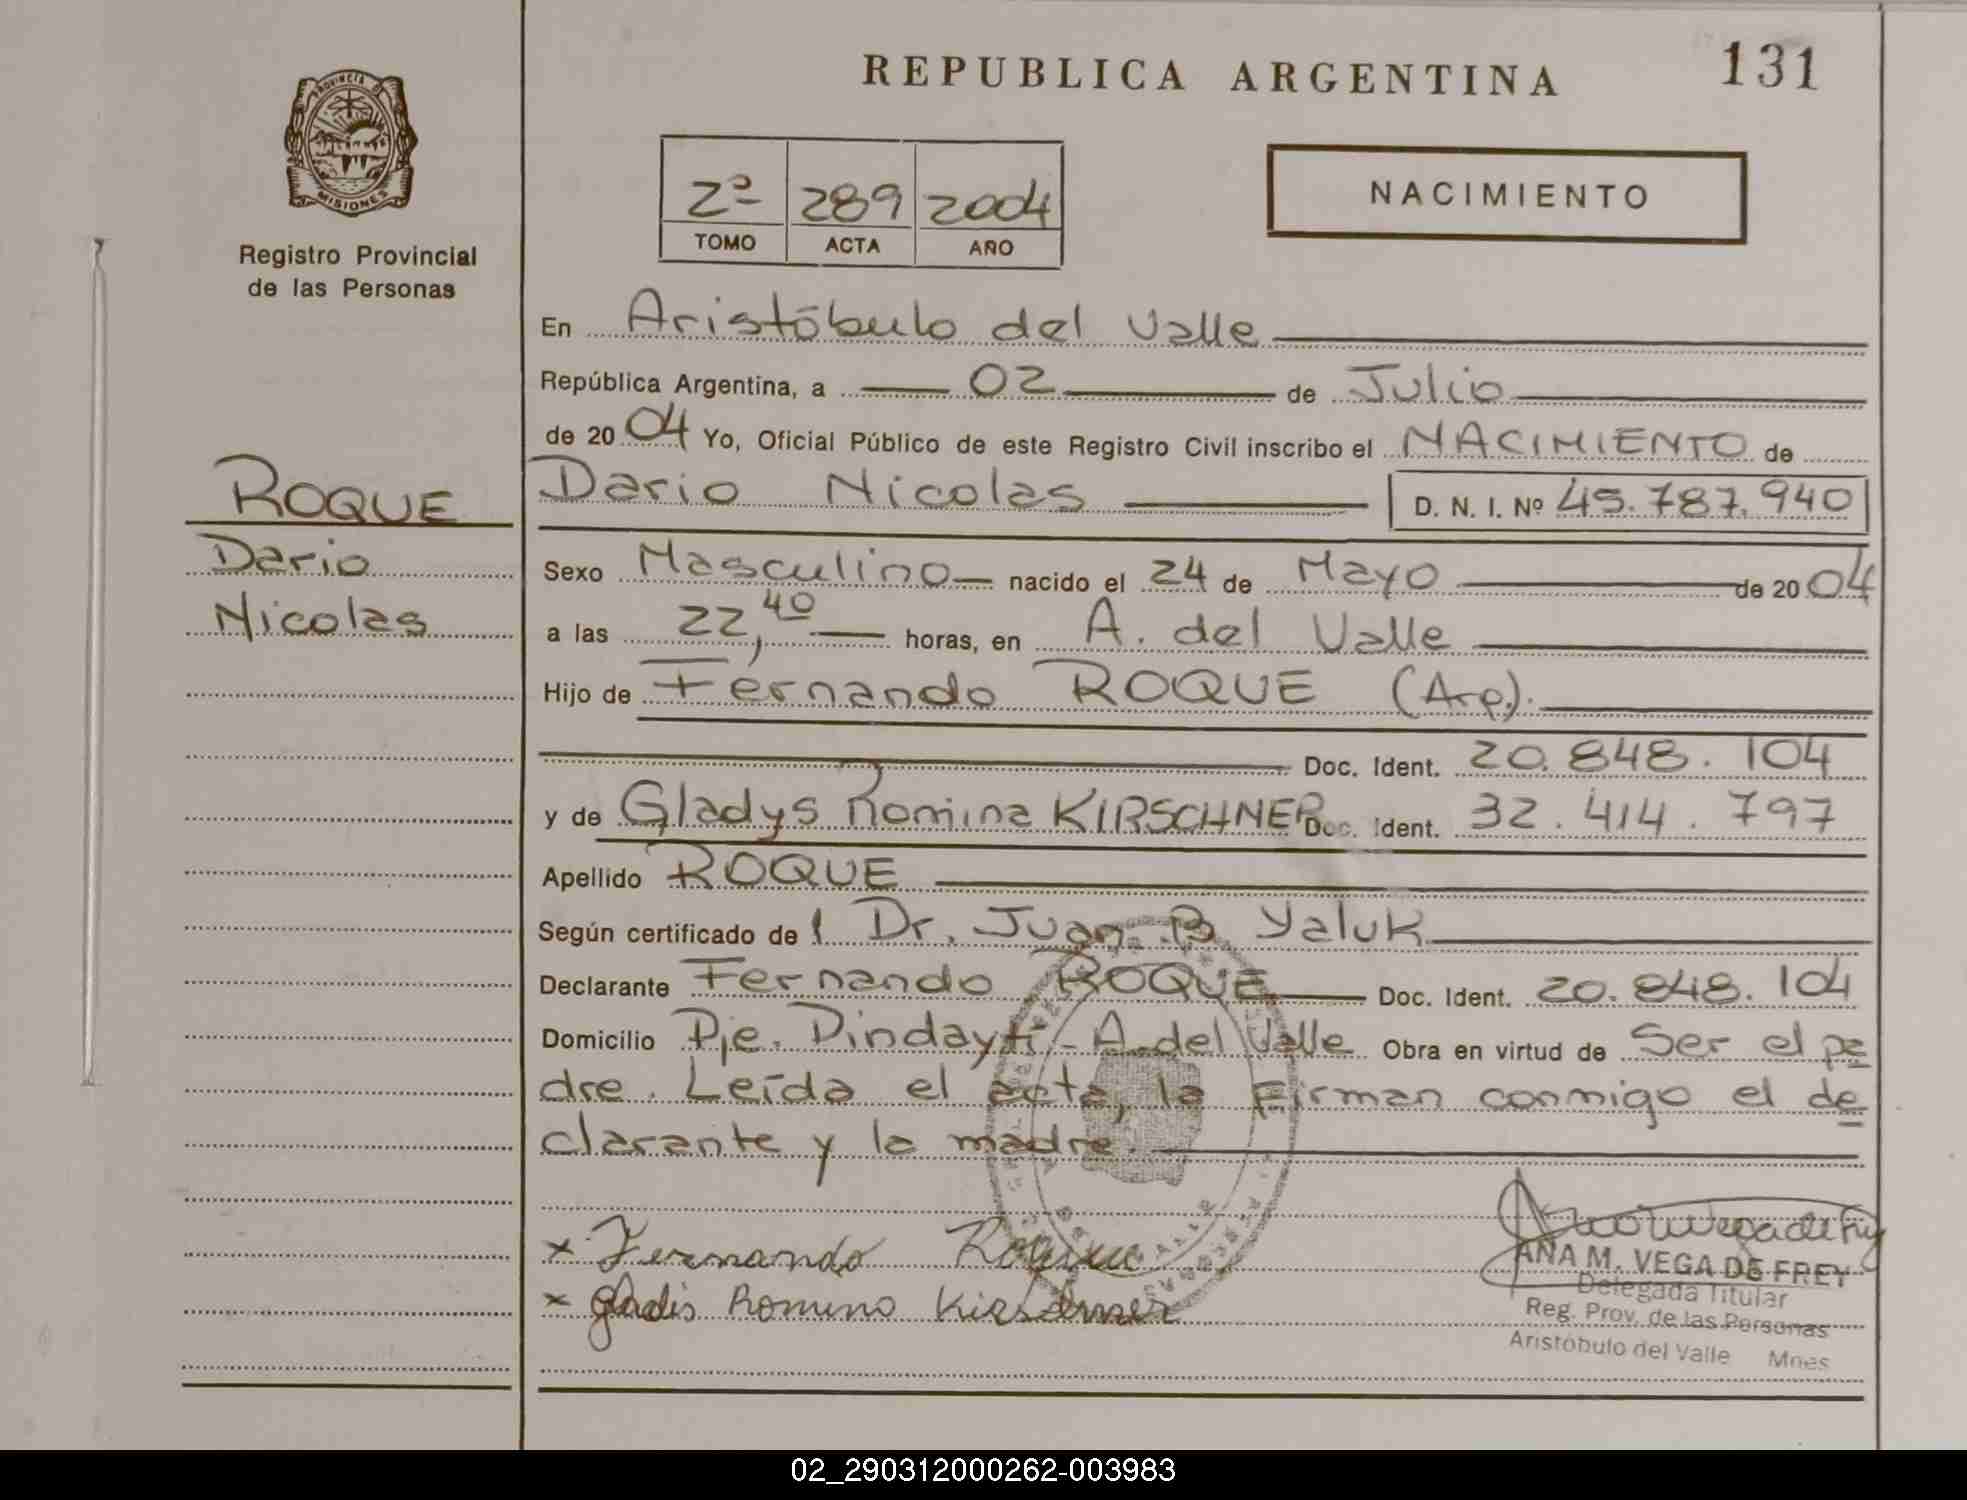 REPUBLICA ARGENTINA
131
PROVINCIA DE
MISIONES
Registro Provincial
de las Personas
2º 289 2004
TOMO ACTA AÑO
NACIMIENTO
En Aristóbulo del Valle
República Argentina, a 02 de Julio
de 2004 Yo, Oficial Público de este Registro Civil inscribo el NACIMIENTO de
ROQUE
Dario
Nicolas
Dario Nicolas D. N. I. Nº 45.787.940
Sexo Masculino nacido el 24 de Mayo de 2004
a las 22,40 horas, en A. del Valle
Hijo de Fernando ROQUE (Arg).
Doc. Ident. 20.848.104
y de Gladys Romina KIRSCHNER Doc. Ident. 32.414.797
Apellido ROQUE
Según certificado de l Dr. Juan B Yaluk
Declarante Fernando ROQUE Doc. Ident. 20.848.104
Domicilio Pje. Pindayti - A. del Valle Obra en virtud de Ser el pa
dre. Leída el acta, la Firman conmigo el de
clarante y la madre.
x Fernando Roque
x Gladis Romina Kirschner
ANA M. VEGA DE FREY
Delegada Titular
Reg. Prov. de las Personas
Aristóbulo del Valle Mnes
02_290312000262-003983